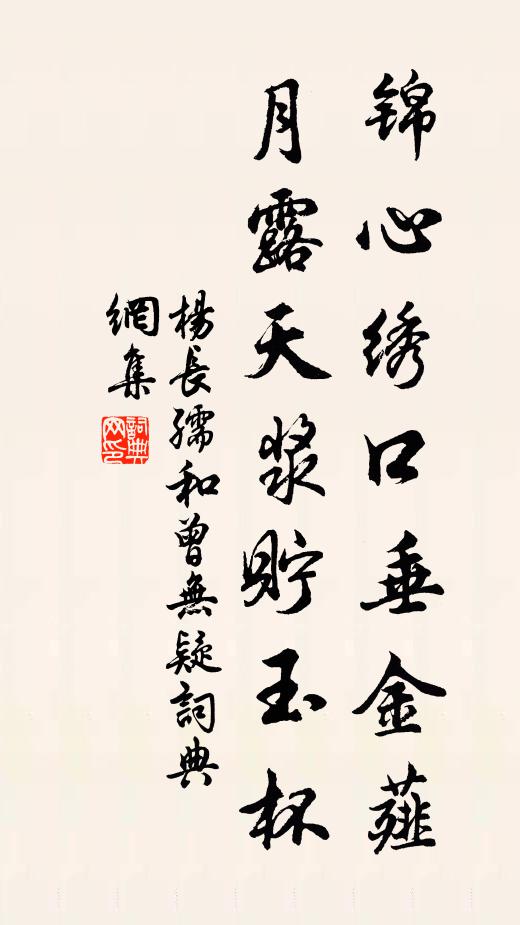 锦心绣口垂金薤
月露天漿貯玉杯
楊長孺和曾無疑詞典
網集
詞典
网印